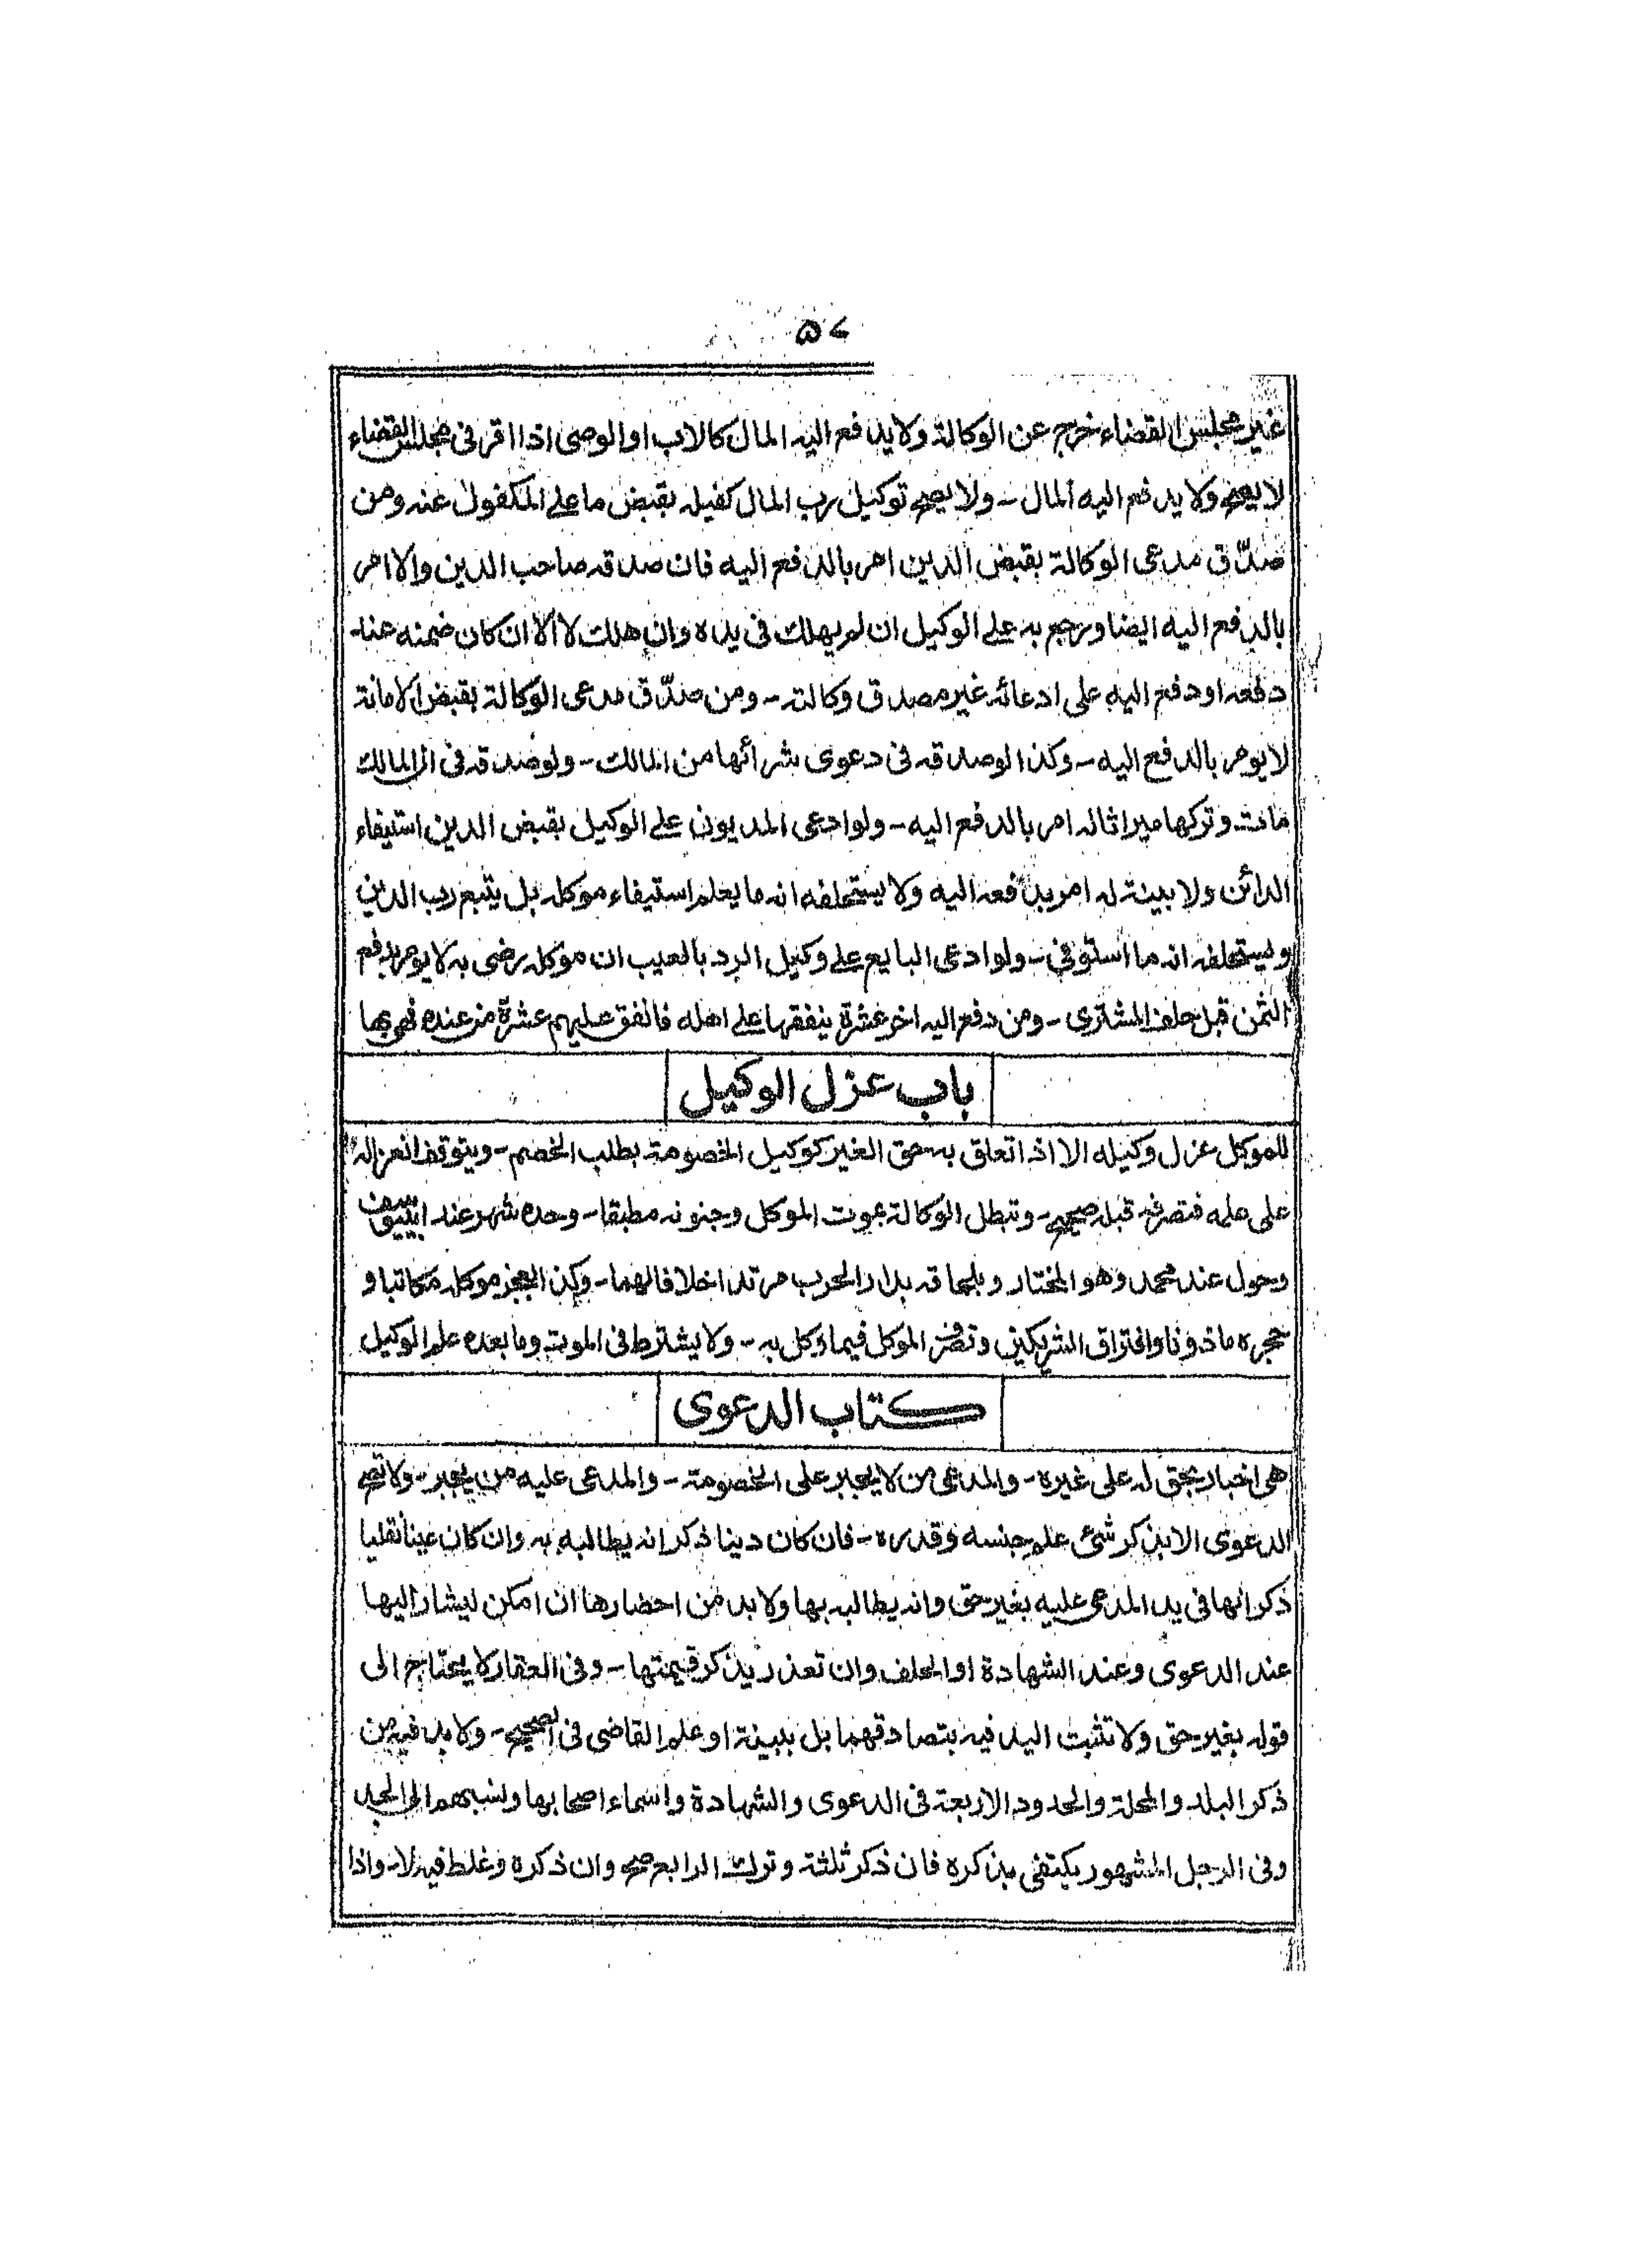 ۵۷
غير مجلس القضاء خرج عن الوكالة ولا يدفع اليه المال كالاب او الوصى اذا اقر فى مجلس القضاء
لا يصح ولا يدفع اليه المال - ولا يصح توكيل رب المال كفيله بقبض ما على المكفول عنه ومن
صدّق مدعى الوكالة بقبض الدين امر بالدفع اليه فان صدقه صاحب الدين والا امر
بالدفع اليه ايضا ورجع به على الوكيل ان لم يهلك فى يده وان هلك لا الا ان كان ضمنه عند
دفعه او دفع اليه على ادعائه غير مصدق وكالته - ومن صدّق مدعى الوكالة بقبض الامانة
لا يومر بالدفع اليه - وكذا لو صدقه فى دعوى شرائها من المالك - ولو صدقه فى ان المالك
مات وتركها ميراثا له امر بالدفع اليه - ولو ادعى المديون على الوكيل بقبض الدين استيفاء
الدائن ولا بينة له امر بدفعه اليه ولا يستحلفه انه ما يعلم استيفاء موكله بل يتبع رب الدين
ويستحلفه انه ما استوفى - ولو ادعى البايع على وكيل الرد بالعيب ان موكله رضى به لا يومر بدفع
الثمن قبل حلف المشترى - ومن دفع اليه اخر عشرة ينفقها على اهله فانفق عليهم عشرة من عنده فهى بها
باب عزل الوكيل
للموكل عزل وكيله الا اذا تعلق به حق الغير كوكيل الخصومة بطلب الخصم - ويتوقف انعزاله
على علمه فتصرفه قبله صحيح - وتبطل الوكالة بموت الموكل وجنونه مطبقا - وحده شهر عند ابى يوسف
وحول عند محمد وهو المختار وبلحاقه بدار الحرب مرتدا خلافا لهما - وكذا بعجز موكله مكاتبا و
حجره ماذونا وافتراق الشريكين وتصرف الموكل فيما وكل به - ولا يشترط فى الموت وما بعده علم الوكيل
كتاب الدعوى
هى اخبار بحق له على غيره - والمدعى من لا يجبر على الخصومة - والمدعى عليه من يجبر - ولا تصح
الدعوى الا بذكر شئ علم جنسه وقدره - فان كان دينا ذكر انه يطالبه به وان كان عينا نقليا
ذكر انها فى يد المدعى عليه بغير حق وانه يطالبه بها ولا بد من احضارها ان امكن ليشار اليها
عند الدعوى وعند الشهادة او الحلف وان تعذر يذكر قيمتها - وفى العقار لا يحتاج الى
قوله بغير حق ولا تثبت اليد فيه بتصادقهما بل ببينة او علم القاضى فى الصحيح - ولا بد فيه من
ذكر البلد والمحلة والحدود الاربعة فى الدعوى والشهادة واسماء اصحابها ونسبهم الى الجد
وفى الرجل المشهور يكتفى بذكره فان ذكر ثلثة وترك الرابع صح وان ذكره وغلط فيه لا - واذا